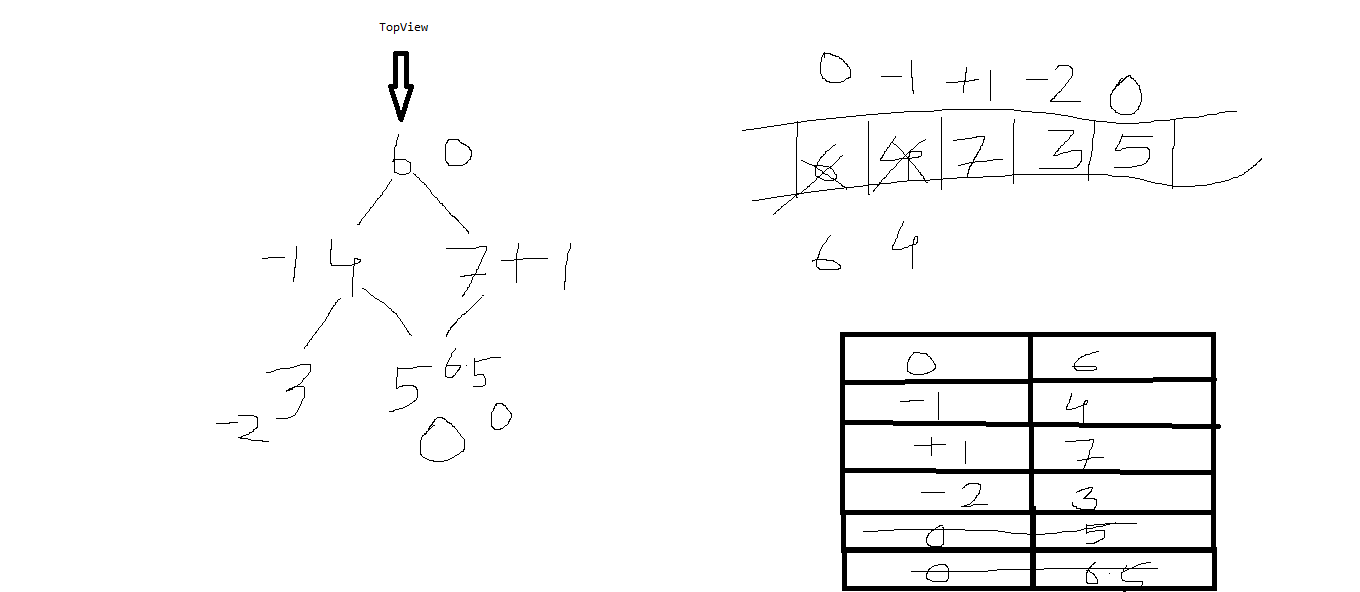 TopView
6 0
-1 4 7 +1
3 5 6.5
-2 0 0
0 -1 +1 -2 0
6 4 7 3 5
6 4
0 6
-1 4
+1 7
-2 3
0 5
0 6.5